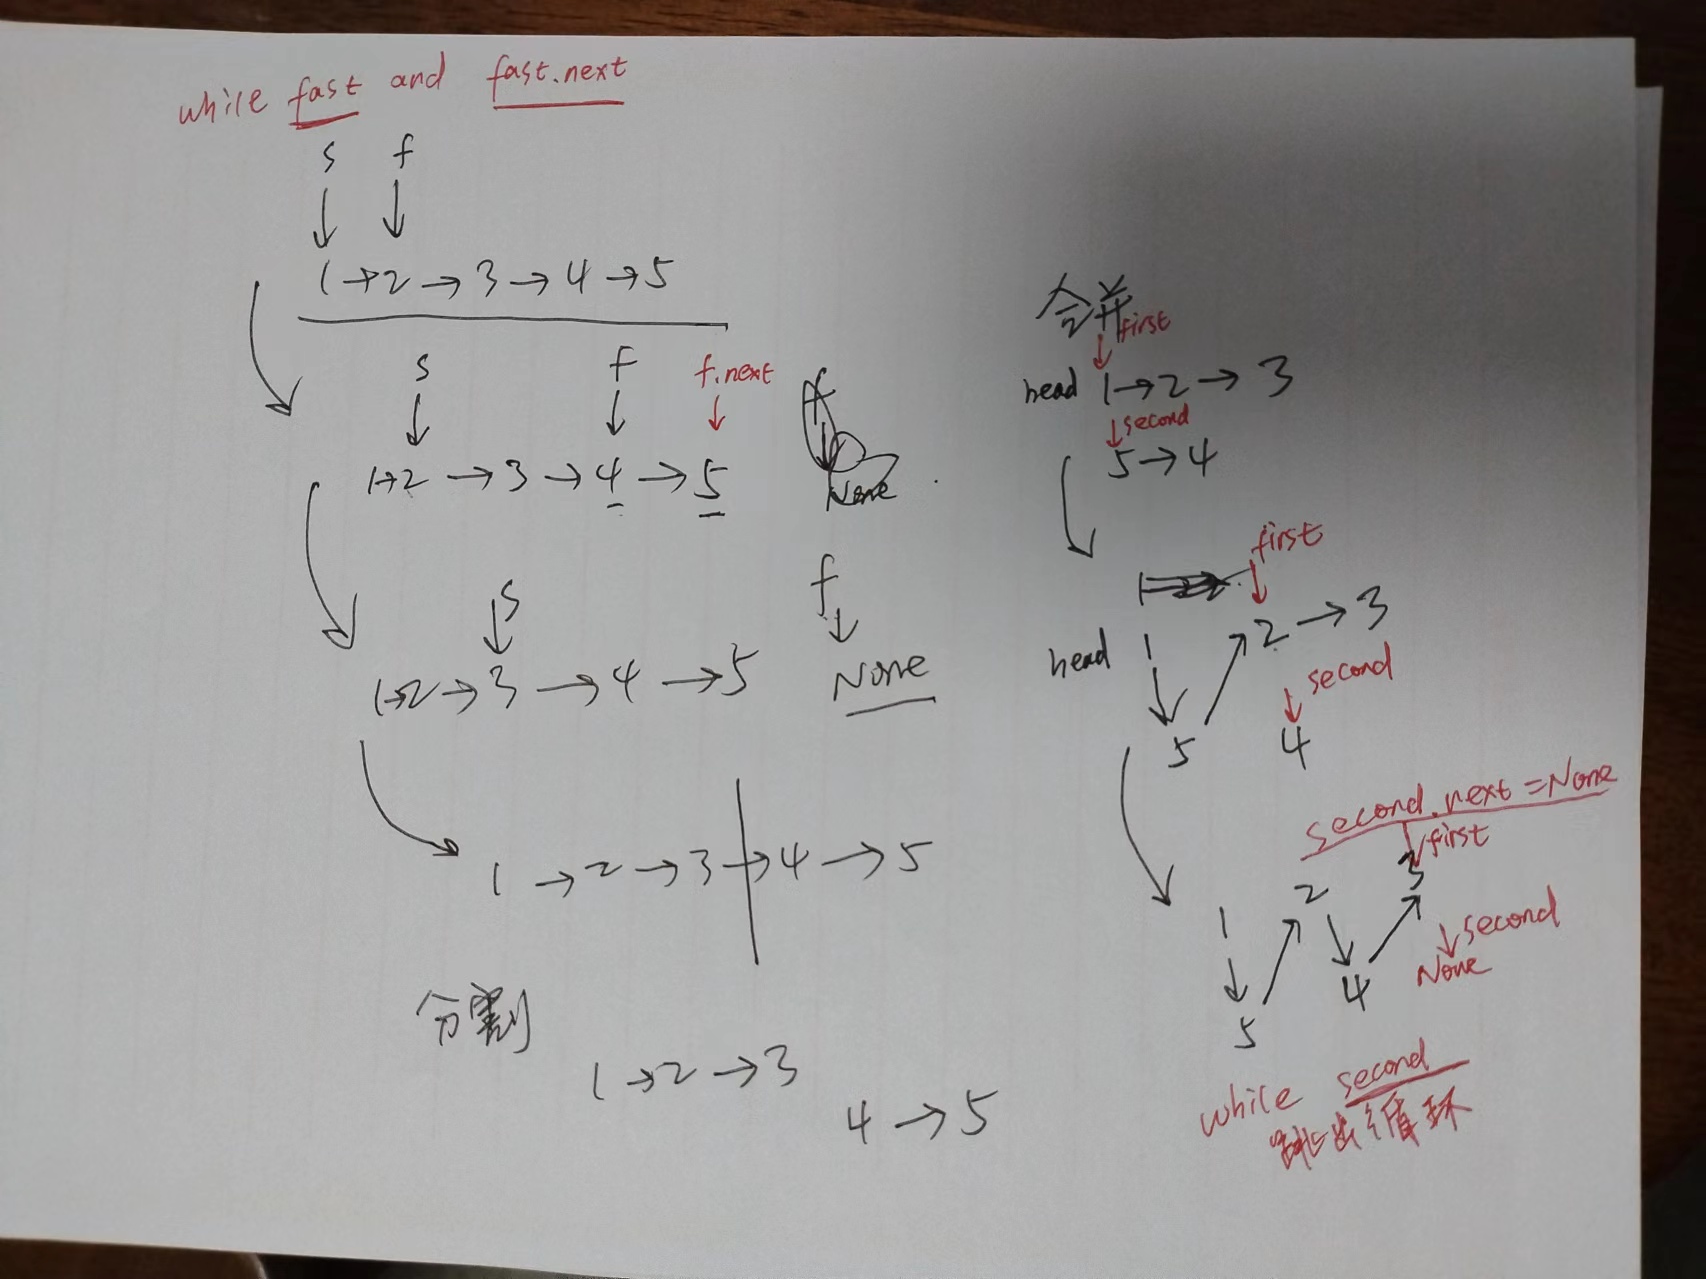 while fast and fast.next
s f
1→2→3→4→5
s f f.next
1→2→3→4→5
None
s f
1→2→3→4→5 None
1→2→3→4→5
分割
1→2→3
4→5
合并
first
head 1→2→3
second
5→4
first
1
2→3
head 1
second
5 4
second.next=None
first
3
2
1
second
None
4
5
while second
跳出循环